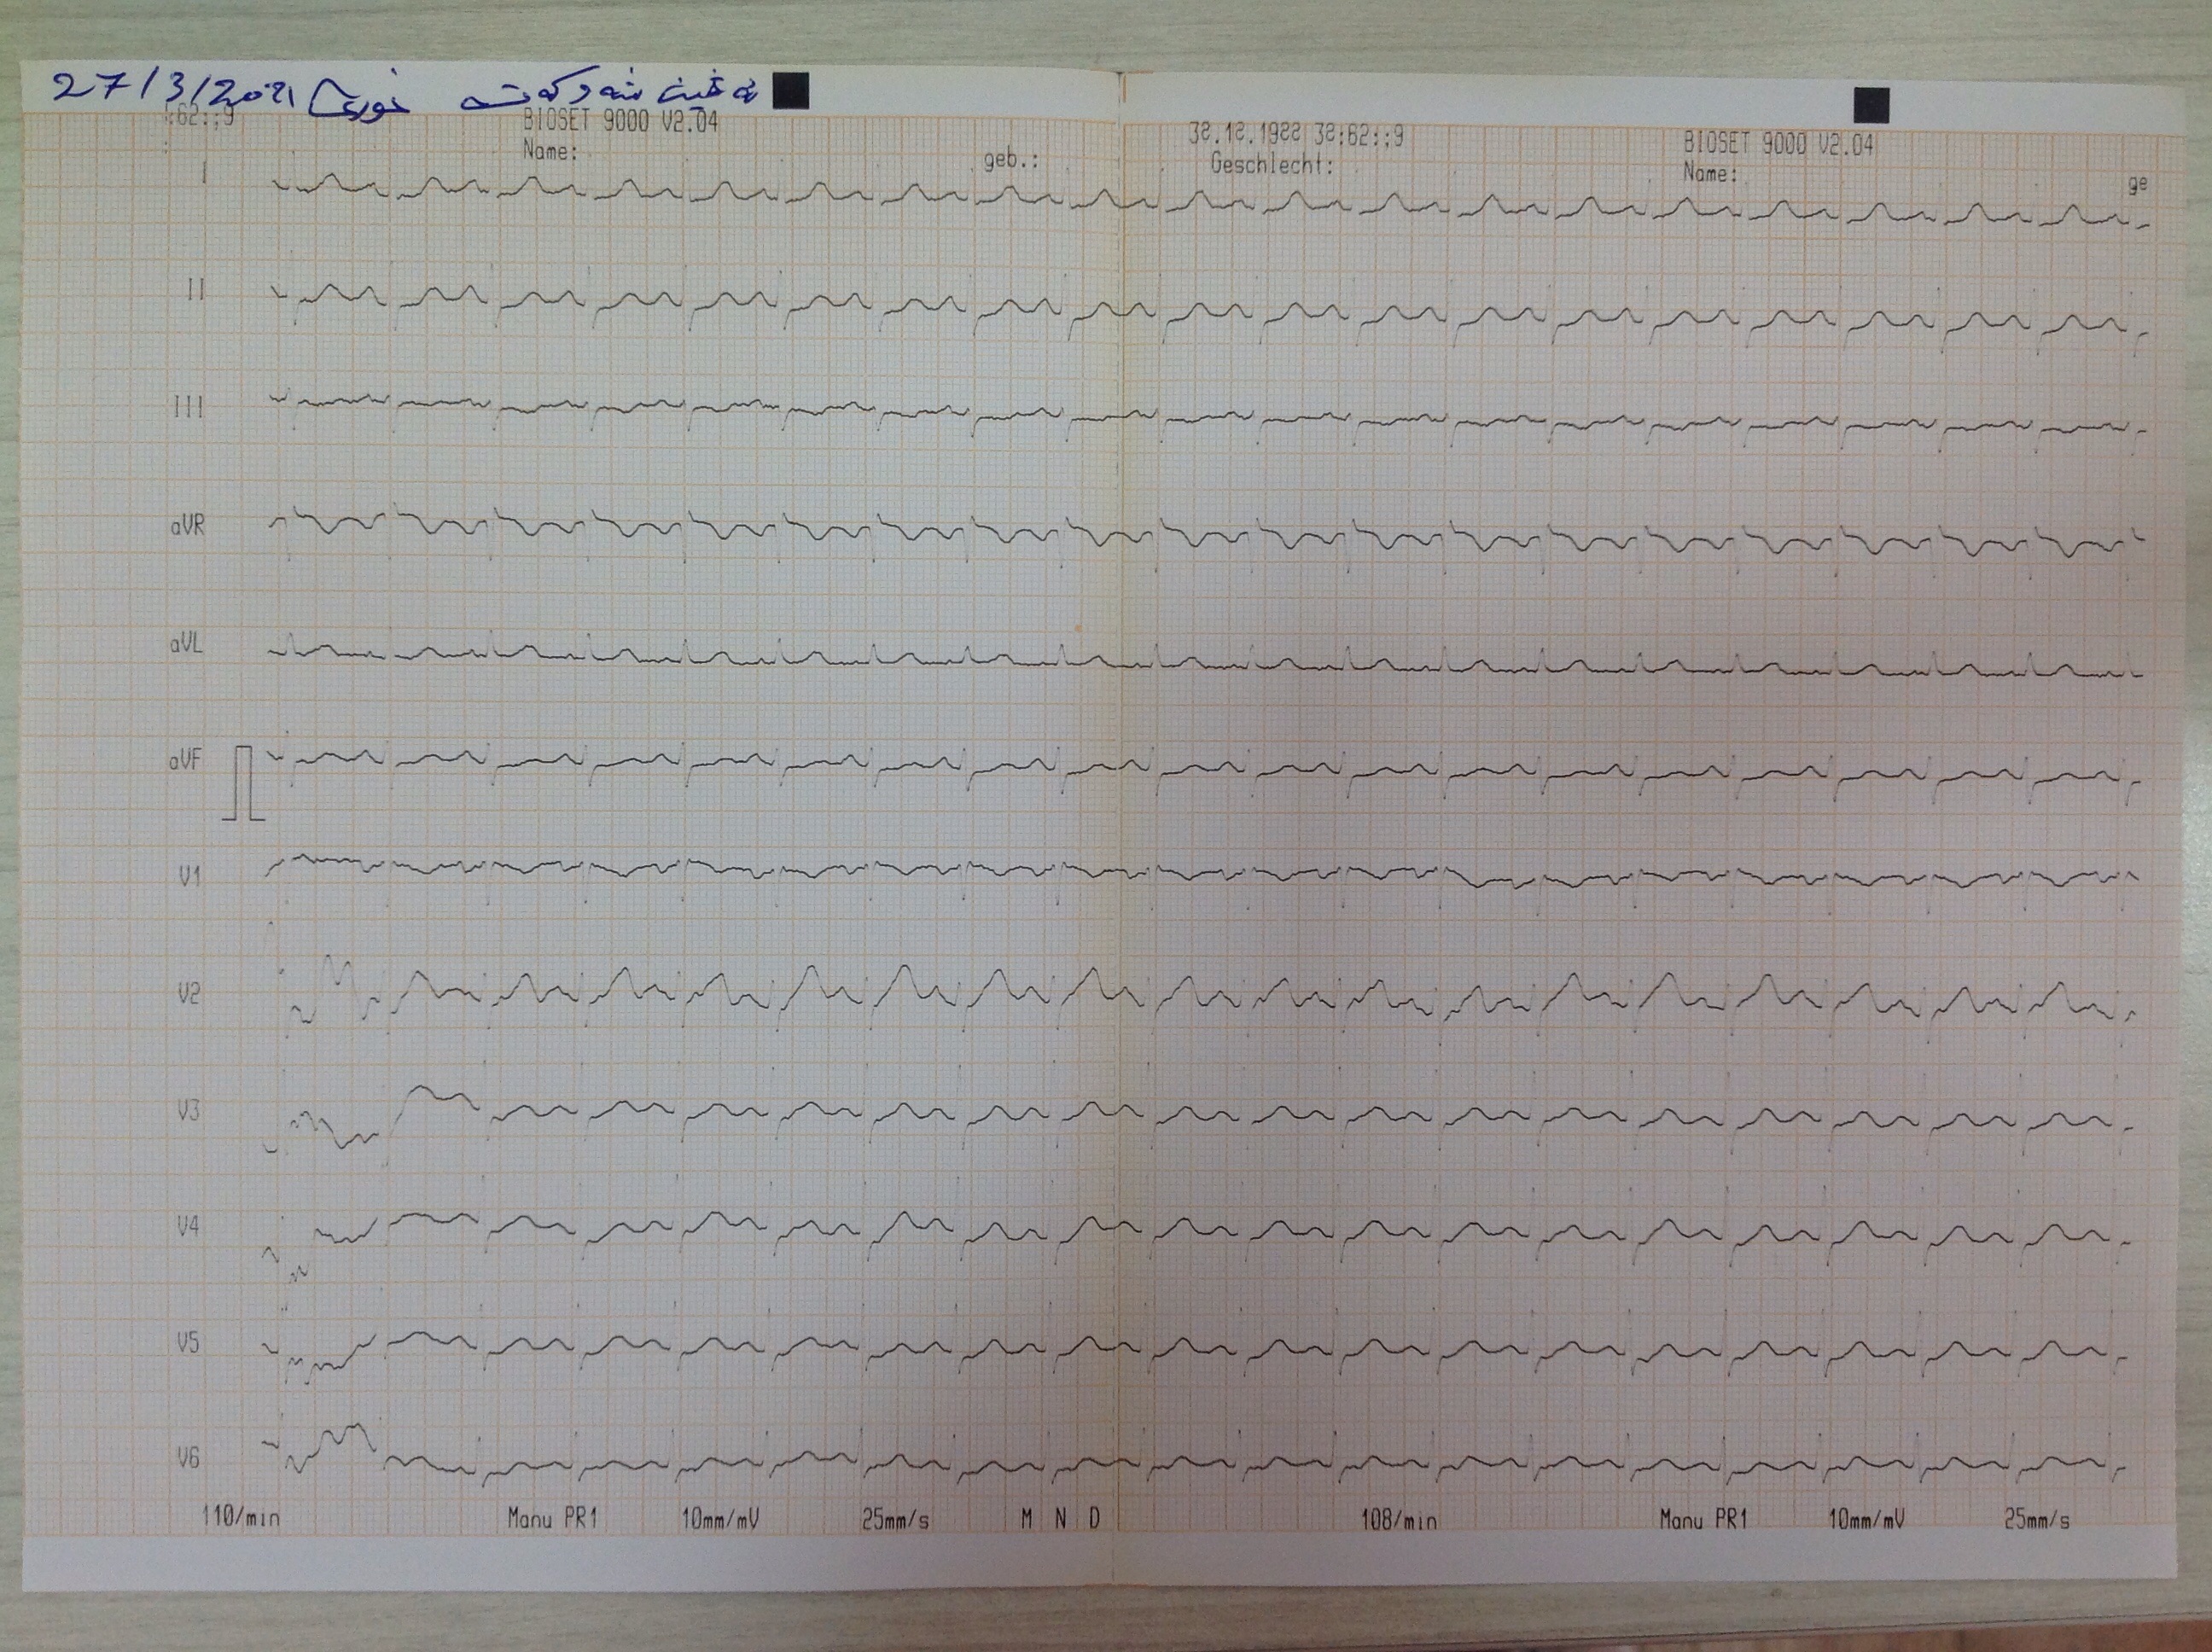 27/3/2021
:62:;9 BIOSET 9000 V2.04 38.18.1988 38:62:;9 BIOSET 9000 V2.04
: Name: geb.: Geschlecht: Name: ge
I
II
III
aVR
aVL
aVF
V1
V2
V3
V4
V5
V6
110/min Manu PR1 10mm/mV 25mm/s M N D 108/min Manu PR1 10mm/mV 25mm/s